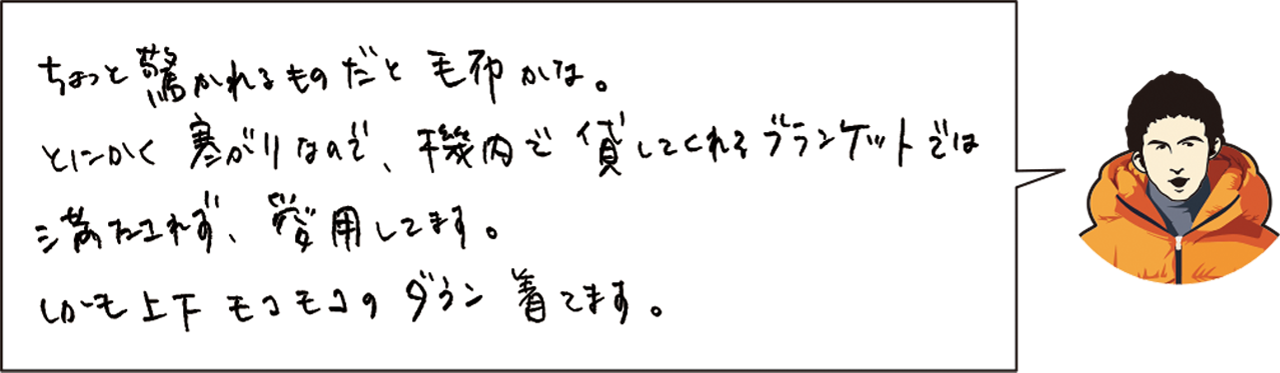 ちょっと驚かれるものだと毛布かな。
とにかく寒がりなので、機内で貸してくれるブランケットでは
満たされず、愛用してます。
しかも上下モコモコのダウン着てます。